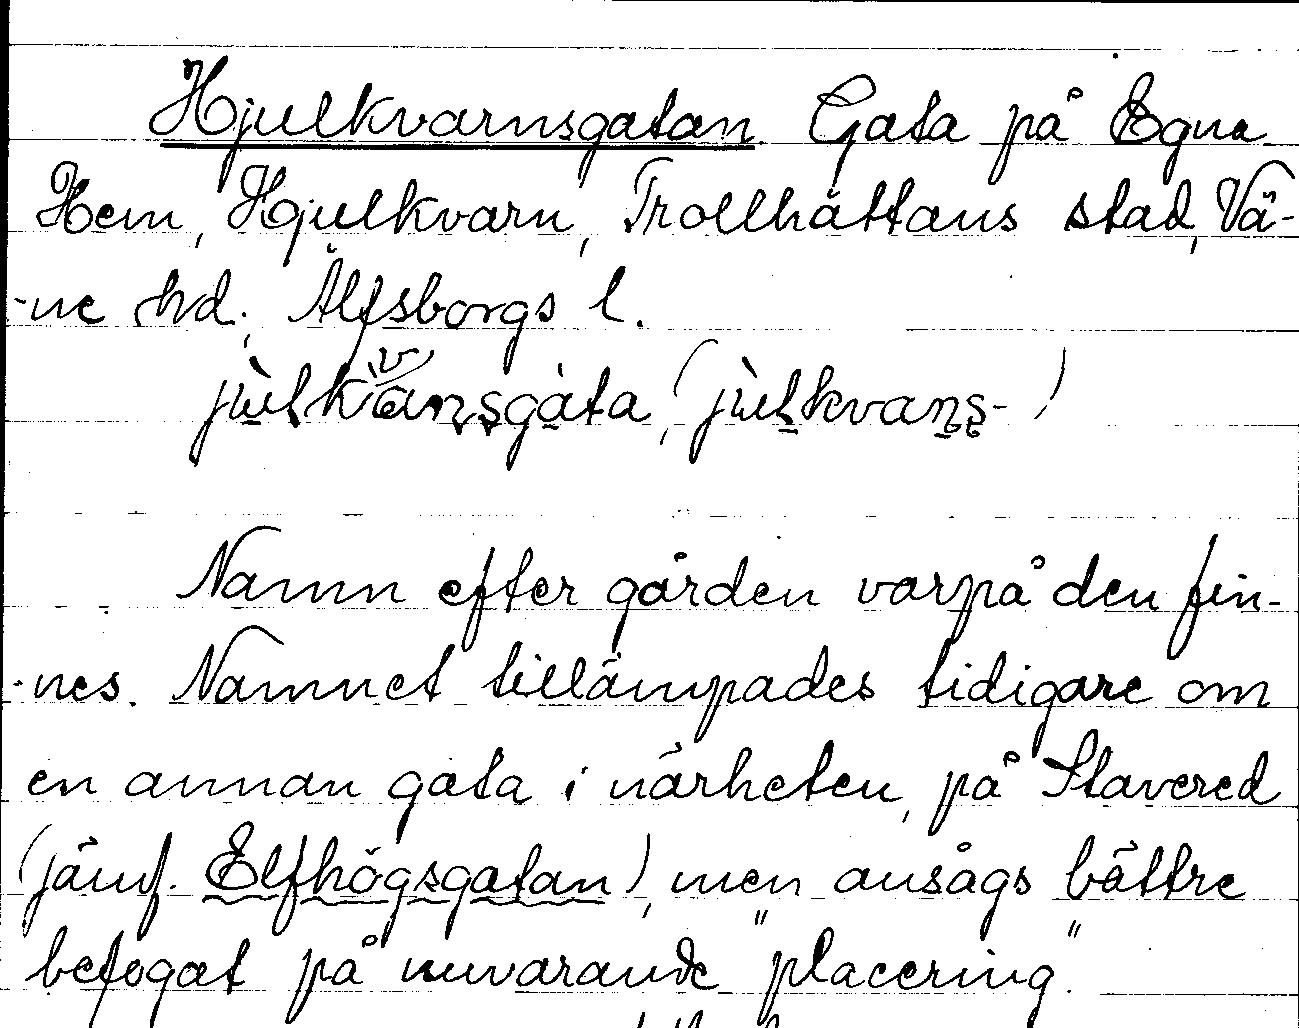 Hjulkvarnsgatan. Gata på Egna
Hem, Hjulkvarn, Trollhättans stad, Vä-
-ne hd; Älfsborgs l.
jùlkvanṣgàta, (jùlkvaṇṣ- )
Namn efter gården varpå den fin-
-nes. Namnet tillämpades tidigare om
en annan gata i närheten, på Stavered
(jämf. Elfhögsgatan), men ansågs bättre
befogat på nuvarande "placering".